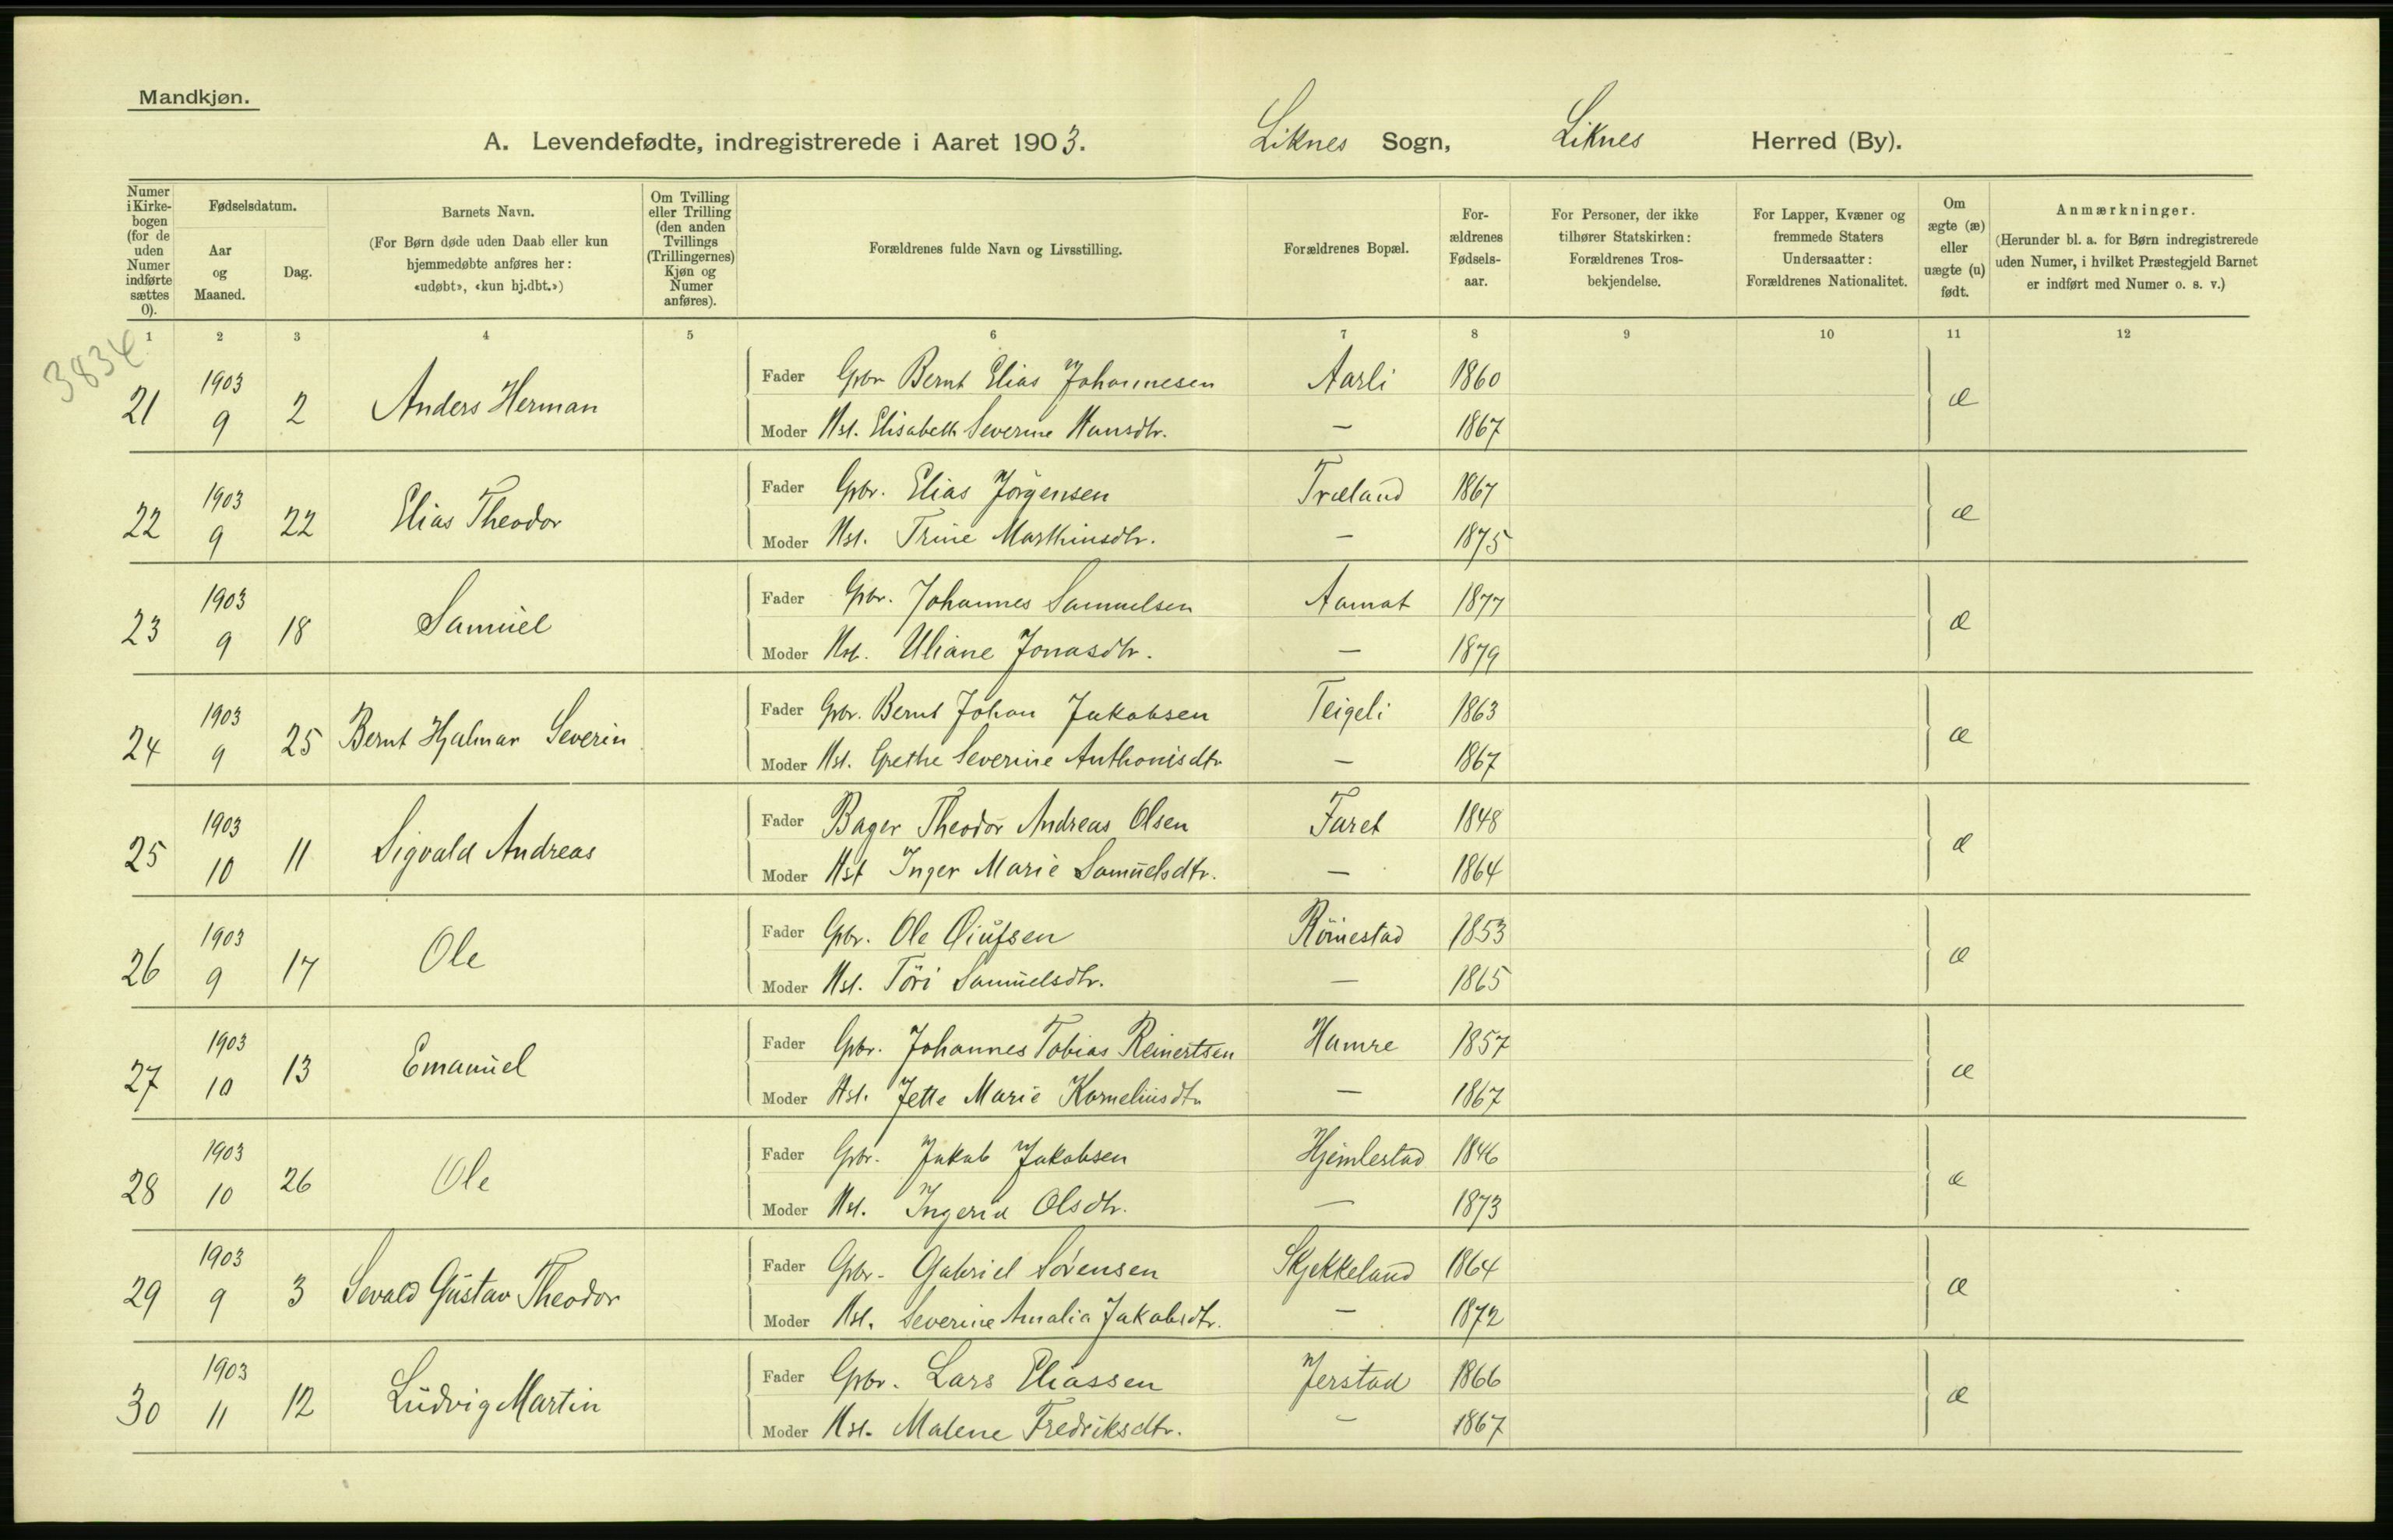 Mandkjøn.
A. Levendefødte, indregistrerede i Aaret 1903. Liknes Sogn, Liknes Herred (By).
Numer i Kirkebogen (for de uden Numer indførte sættes 0).
Fødselsdatum.
Aar og Maaned.
Dag.
Barnets Navn.
(For Børn døde uden Daab eller kun hjemmedøbte anføres her: «udøbt», «kun hj.dbt.»)
Om Tvilling eller Trilling (den anden Tvillings (Trillingernes) Kjøn og Numer anføres).
Forældrenes fulde Navn og Livsstilling.
Forældrenes Bopæl.
Forældrenes Fødselsaar.
For Personer, der ikke tilhører Statskirken: Forældrenes Trosbekjendelse.
For Lapper, Kvæner og fremmede Staters Undersaatter: Forældrenes Nationalitet.
Om ægte (æ) eller uægte (u) født.
Anmærkninger.
(Herunder bl. a. for Børn indregistrerede uden Numer, i hvilket Præstegjeld Barnet er indført med Numer o. s. v.)
1 2 3 4 5 6 7 8 9 10 11 12
3834
21 1903 9 2 Anders Herman Fader Gbr Bernt Elias Johannesen Aarli 1860 æ
Moder Hst. Elisabeth Severine Hansdtr. — 1867
22 1903 9 22 Elias Theodor Fader Gbr. Elias Jørgensen Træland 1867 æ
Moder Hst. Trine Marthinsdtr. — 1875
23 1903 9 18 Samuel Fader Gbr. Johannes Samuelsen Aamot 1877 æ
Moder Hst. Uliane Jonasdtr. — 1879
24 1903 9 25 Bernt Hjalmar Severin Fader Gbr. Bernt Johan Jakobsen Teigeli 1863 æ
Moder Hst. Grethe Severine Anthonisdtr — 1867
25 1903 10 11 Sigvald Andreas Fader Bager Theodor Andreas Olsen Faret 1848 æ
Moder Hst Inger Marie Samuelsdtr. — 1864
26 1903 9 17 Ole Fader Gbr. Ole Øiufsen Römestad 1853 æ
Moder Hst. Töri Samuelsdtr. — 1865
27 1903 10 13 Emanuel Fader Gbr. Johannes Tobias Reinertsen Hamre 1857 æ
Moder Hst. Jette Marie Korneliusdtr — 1867
28 1903 10 26 Ole Fader Gbr. Jakob Jakobsen Hjemlestad 1846 æ
Moder Hst. Ingerid Olsdtr. — 1873
29 1903 9 3 Sevald Gustav Theodor Fader Gbr. Gabriel Sørensen Skjekkeland 1864 æ
Moder Hst. Severine Amalia Jakobsdtr. — 1872
30 1903 11 12 Ludvig Martin Fader Gbr. Lars Eliassen Jerstad 1866 æ
Moder Hst. Malene Fredriksdtr. — 1867